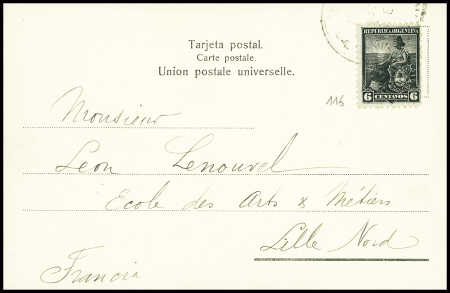 REPUBLICA ARGENTINA
6 CENTAVOS 6
Tarjeta postal.
Carte postale.
Union postale universelle.
116
Monsieur
Leon Lenouvel
Ecole des Arts & Métiers
Lille Nord
Francia